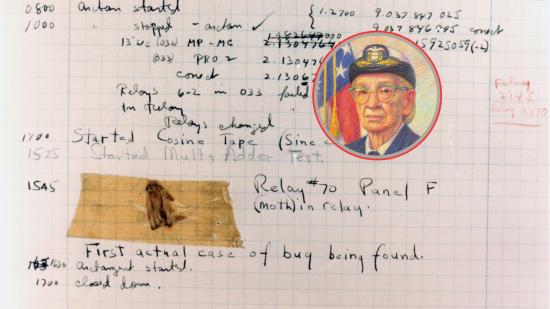 0800 antan started
1000 " stopped - antan ✓
{ 1.2700 9.037 847 025
9.037 846 995 conect
13" uc (032) MP - MC
(033) PRO 2 2.1304764
conect 2.1306
Relays 6-2 in 033 failed
In Relay
Relays changed
Relay
3370
Started Cosine Tape (Sine
1525 Started Mult+ Adder Test.
1545 Relay #70 Panel F
(moth) in relay.
First actual case of bug being found.
antangent started.
1700 closed down.